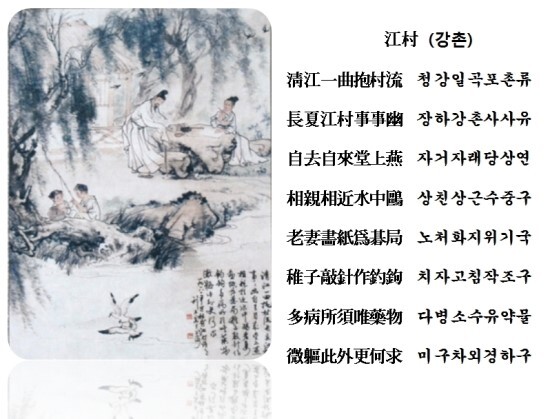 江村 (강촌)
清江一曲抱村流 청강일곡포촌류
長夏江村事事幽 장하강촌사사유
自去自來堂上燕 자거자래당상연
相親相近水中鷗 상친상근수중구
老妻畵紙爲碁局 노처화지위기국
稚子敲針作釣鉤 치자고침작조구
多病所須唯藥物 다병소수유약물
微軀此外更何求 미구차외경하구